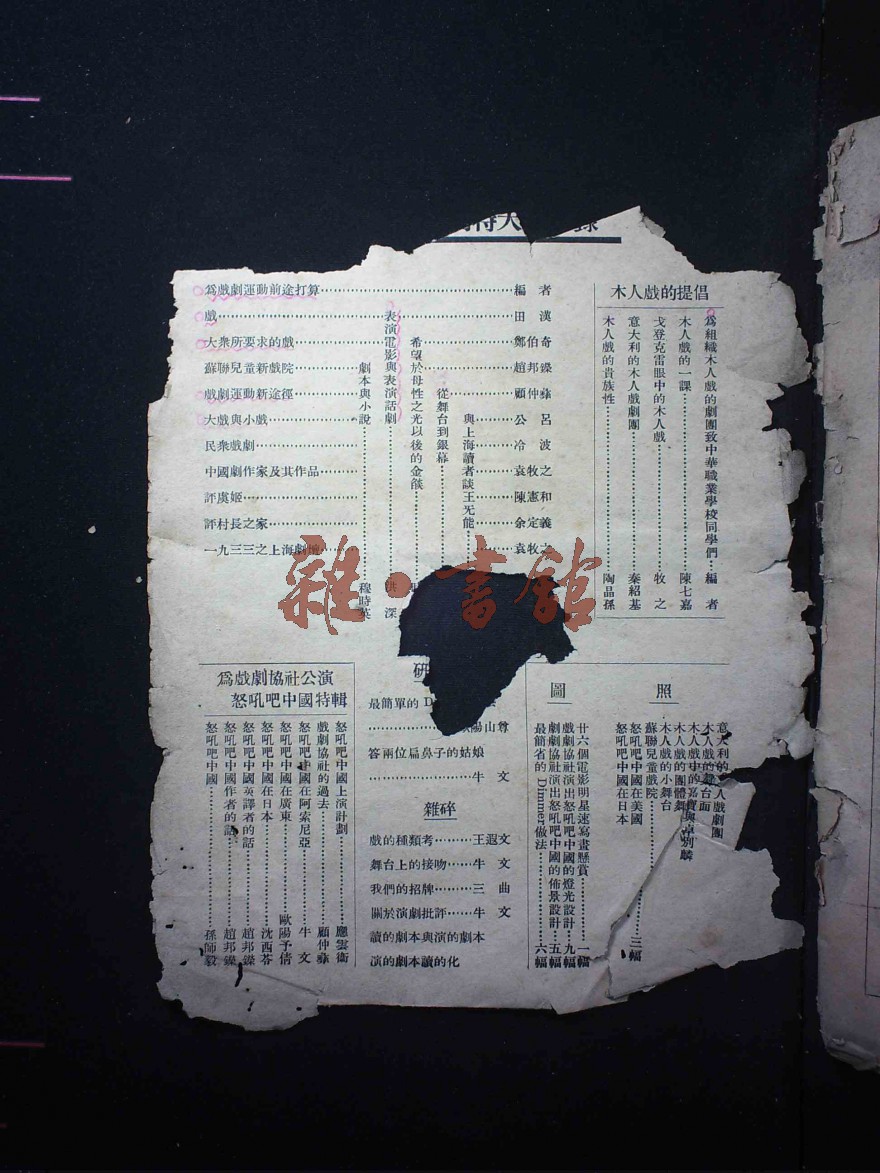 特大
錄
爲戲劇運動前途打算……編者
戲……田漢
大衆所要求的戲……鄭伯奇
蘇聯兒童新戲院……趙邦鑅
戲劇運動新途徑……顧仲彝
大戲與小戲……公呂
民衆戲劇……冷波
中國劇作家及其作品……袁牧之
評虞姬……陳憲和
評村長之家……余定義
一九三三之上海劇壇……袁牧之
與上海讀者談王无能……
從舞台到銀幕……
希望於母性之光以後的金燄……
表演電影與表演話劇……洪深
劇本與小說……穆時英
木人戲的提倡
爲組織木人戲的劇團致中華職業學校同學們…編者
木人戲的一課……陳七嘉
戈登克雷眼中的木人戲……牧之
意大利的木人戲劇團……秦紹基
木人戲的貴族性……陶晶孫
照
圖
意大利的木人戲劇團
木人戲的舞台面
木人戲中的嘉寶與卓別麟
木人戲的團體舞
木人戲的小舞台
蘇聯兒童戲院
怒吼吧中國在美國……三幅
怒吼吧中國在日本
廿六個電影明星速寫畫懸賞……一幅
戲劇協社演出怒吼吧中國的燈光設計…九幅
戲劇協社演出怒吼吧中國的佈景設計…五幅
最簡省的Dimmer做法……六幅
研
最簡單的D
……歐陽山尊
答兩位扁鼻子的姑娘
……牛文
雜碎
戲的種類考……王遐文
舞台上的接吻……牛文
我們的招牌……三曲
關於演劇批評……牛文
讀的劇本與演的劇本
演的劇本讀的化
爲戲劇協社公演
怒吼吧中國特輯
怒吼吧中國上演計劃……應雲衛
戲劇協社的過去……顧仲彝
怒吼吧中國在阿索尼亞……牛文
怒吼吧中國在廣東……歐陽予倩
怒吼吧中國在日本……沈西苓
怒吼吧中國英譯者的話……趙邦鑅
怒吼吧中國作者的話……趙邦鑅
怒吼吧中國……孫師毅
雜·書館